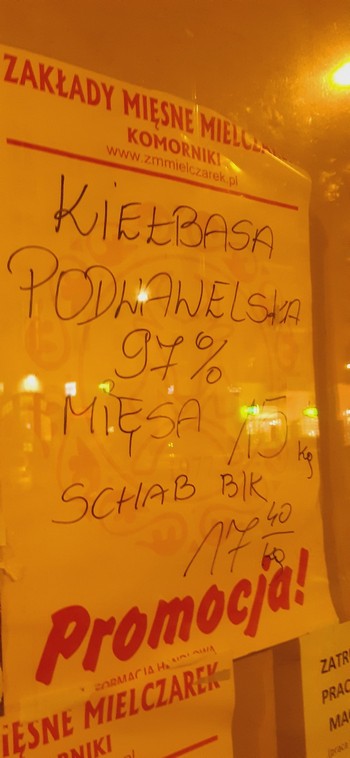 ZAKŁADY MIĘSNE MIELCZAREK
KOMORNIKI
www.zmmielczarek.pl
KIEŁBASA
PODWAWELSKA
97%
MIĘSA 15 kg
SCHAB B/K
17 40 kg
Promocja!
MIĘSNE MIELCZAREK
ZATR
PRAC
MA